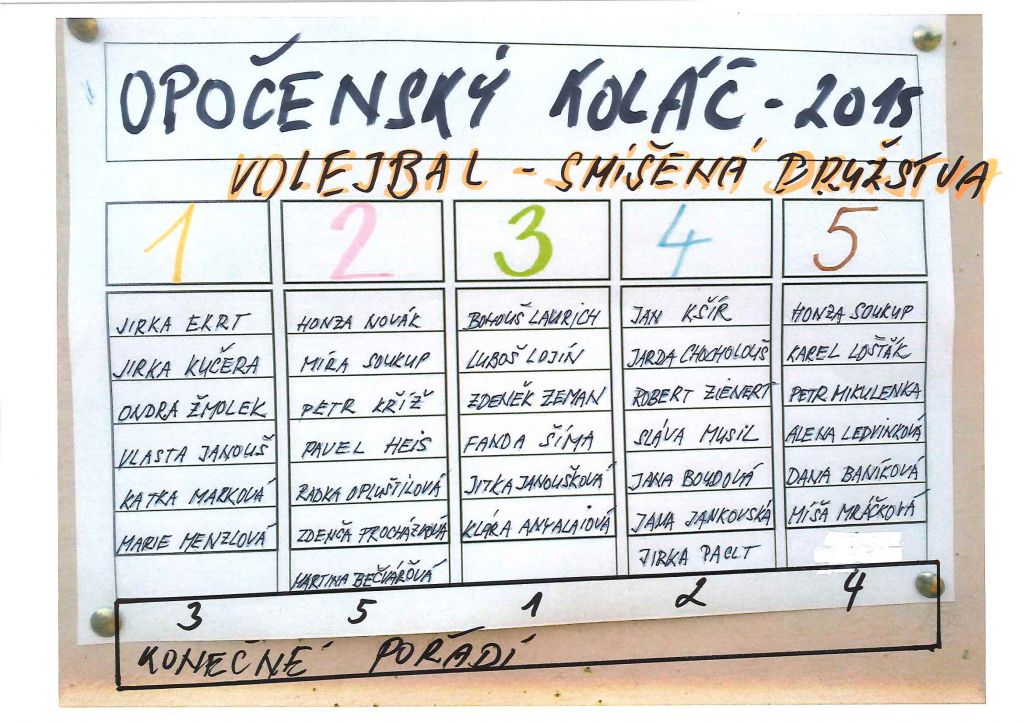 OPOČENSKÝ KOLÁČ - 2015
VOLEJBAL - SMÍŠENÁ DRUŽSTVA
1 2 3 4 5
JIRKA EKRT HONZA NOVÁK BOHOUŠ LAURICH JAN KŠÍŘ HONZA SOUKUP
JIRKA KUČERA MÍRA SOUKUP LUBOŠ LOJÍN JARDA CHOCHOLOUŠ KAREL LOŠŤÁK
ONDRA ŽMOLEK PETR KŘÍŽ ZDENĚK ZEMAN ROBERT ZIENERT PETR MIKULENKA
VLASTA JANOUŠ PAVEL HEIS FANDA ŠÍMA SLÁVA MUSIL ALENA LEDVINKOVÁ
KATKA MARKOVÁ RADKA OPLUŠTILOVÁ JITKA JANOUŠKOVÁ JANA BOUDOVÁ DANA BANÍKOVÁ
MARIE MENZLOVÁ ZDENČA PROCHÁZKOVÁ KLÁRA ANYALAIOVÁ JANA JANKOVSKÁ MÍŠA MRÁČKOVÁ
MARTINA BEČVÁŘOVÁ JIRKA PACLT
3 5 1 2 4
KONEČNÉ POŘADÍ